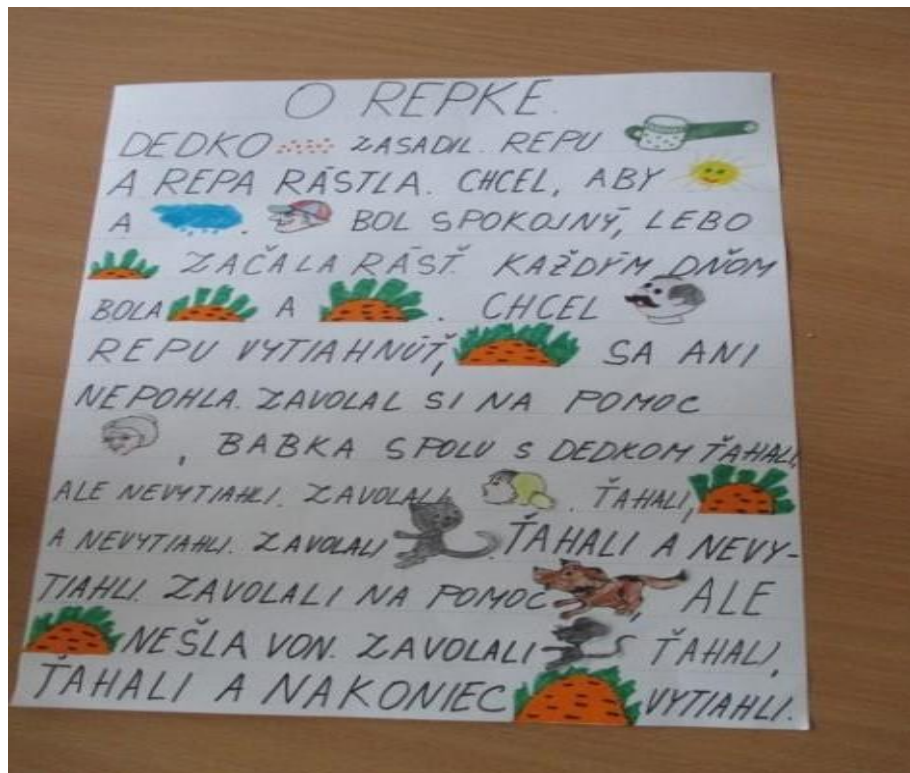 O REPKE.
DEDKO ZASADIL REPU
A REPA RÁSTLA. CHCEL, ABY
A . BOL SPOKOJNÝ, LEBO
ZAČALA RÁSŤ. KAŽDÝM DŇOM
BOLA A . CHCEL
REPU VYTIAHNÚŤ, SA ANI
NEPOHLA. ZAVOLAL SI NA POMOC
, BABKA SPOLU S DEDKOM ŤAHALI,
ALE NEVYTIAHLI. ZAVOLALI . ŤAHALI,
A NEVYTIAHLI. ZAVOLALI . ŤAHALI A NEVY-
TIAHLI. ZAVOLALI NA POMOC , ALE
NEŠLA VON. ZAVOLALI ŤAHALI,
ŤAHALI A NAKONIEC VYTIAHLI.